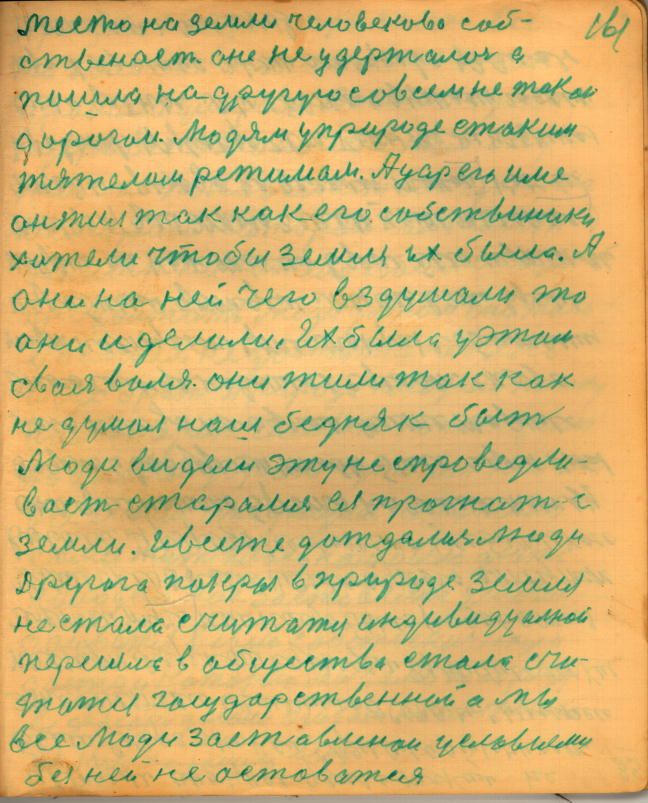 место на земли человеково соб- 161
ственаст. оне не удержалос а
пошла на другую совсем не такои
дорогои. Людям уприроде стаким
тяжелом режимам. Ауарсто име
он жил так как его собствиники
хотели чтобы земля их была. А
они на ней чего вздумали то
они и делоли. Их была уэтом
своя воля. они жили так как
не думал наш бедняк быт
Люди видели эту не спроведли-
васт старалися ея прогнат с
земли. Ивсеже дождалися люди
другога покры в природе земля
не стала считатя индивидуалной
перешла в общества стала счи-
татя государственной а мы
все люди заставленои условиями
без ней не остоватся